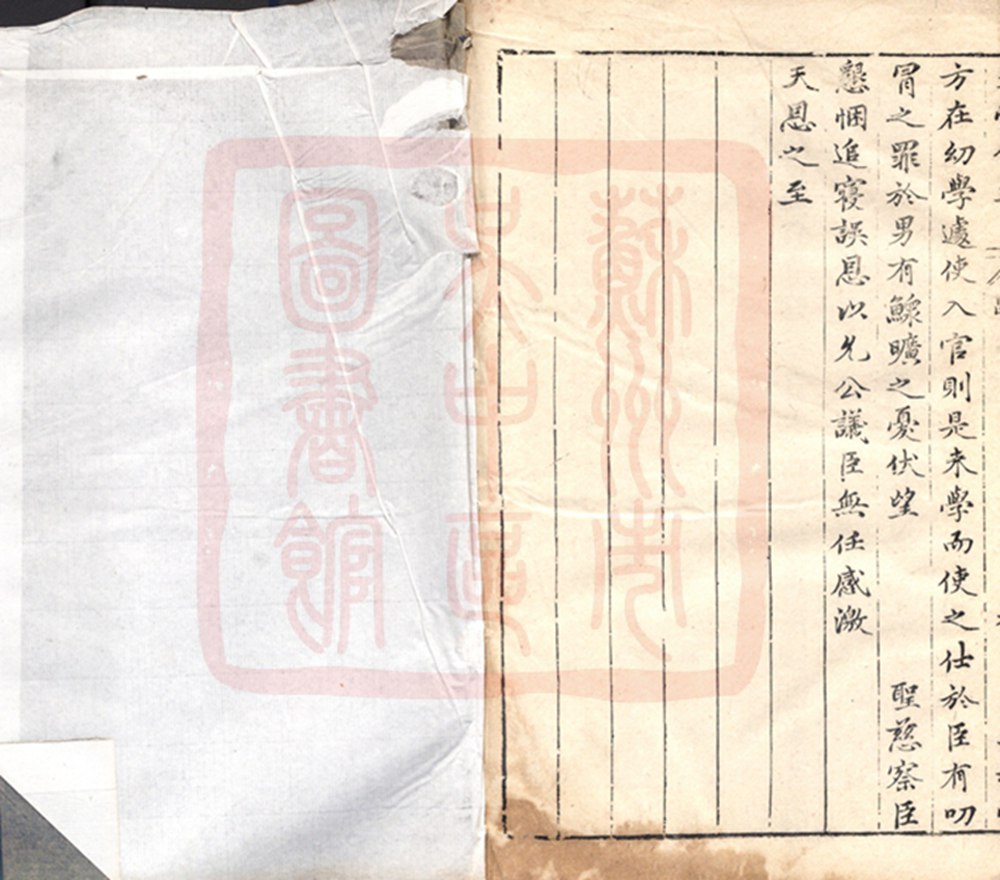 方在幼學遽使入官則是未學而使之仕於臣有叨
冒之罪於男有鰥曠之憂伏望 聖慈察臣
懇悃追寢誤恩以允公議臣無任感激
天恩之至
蘇州市
吳中區
圖書館